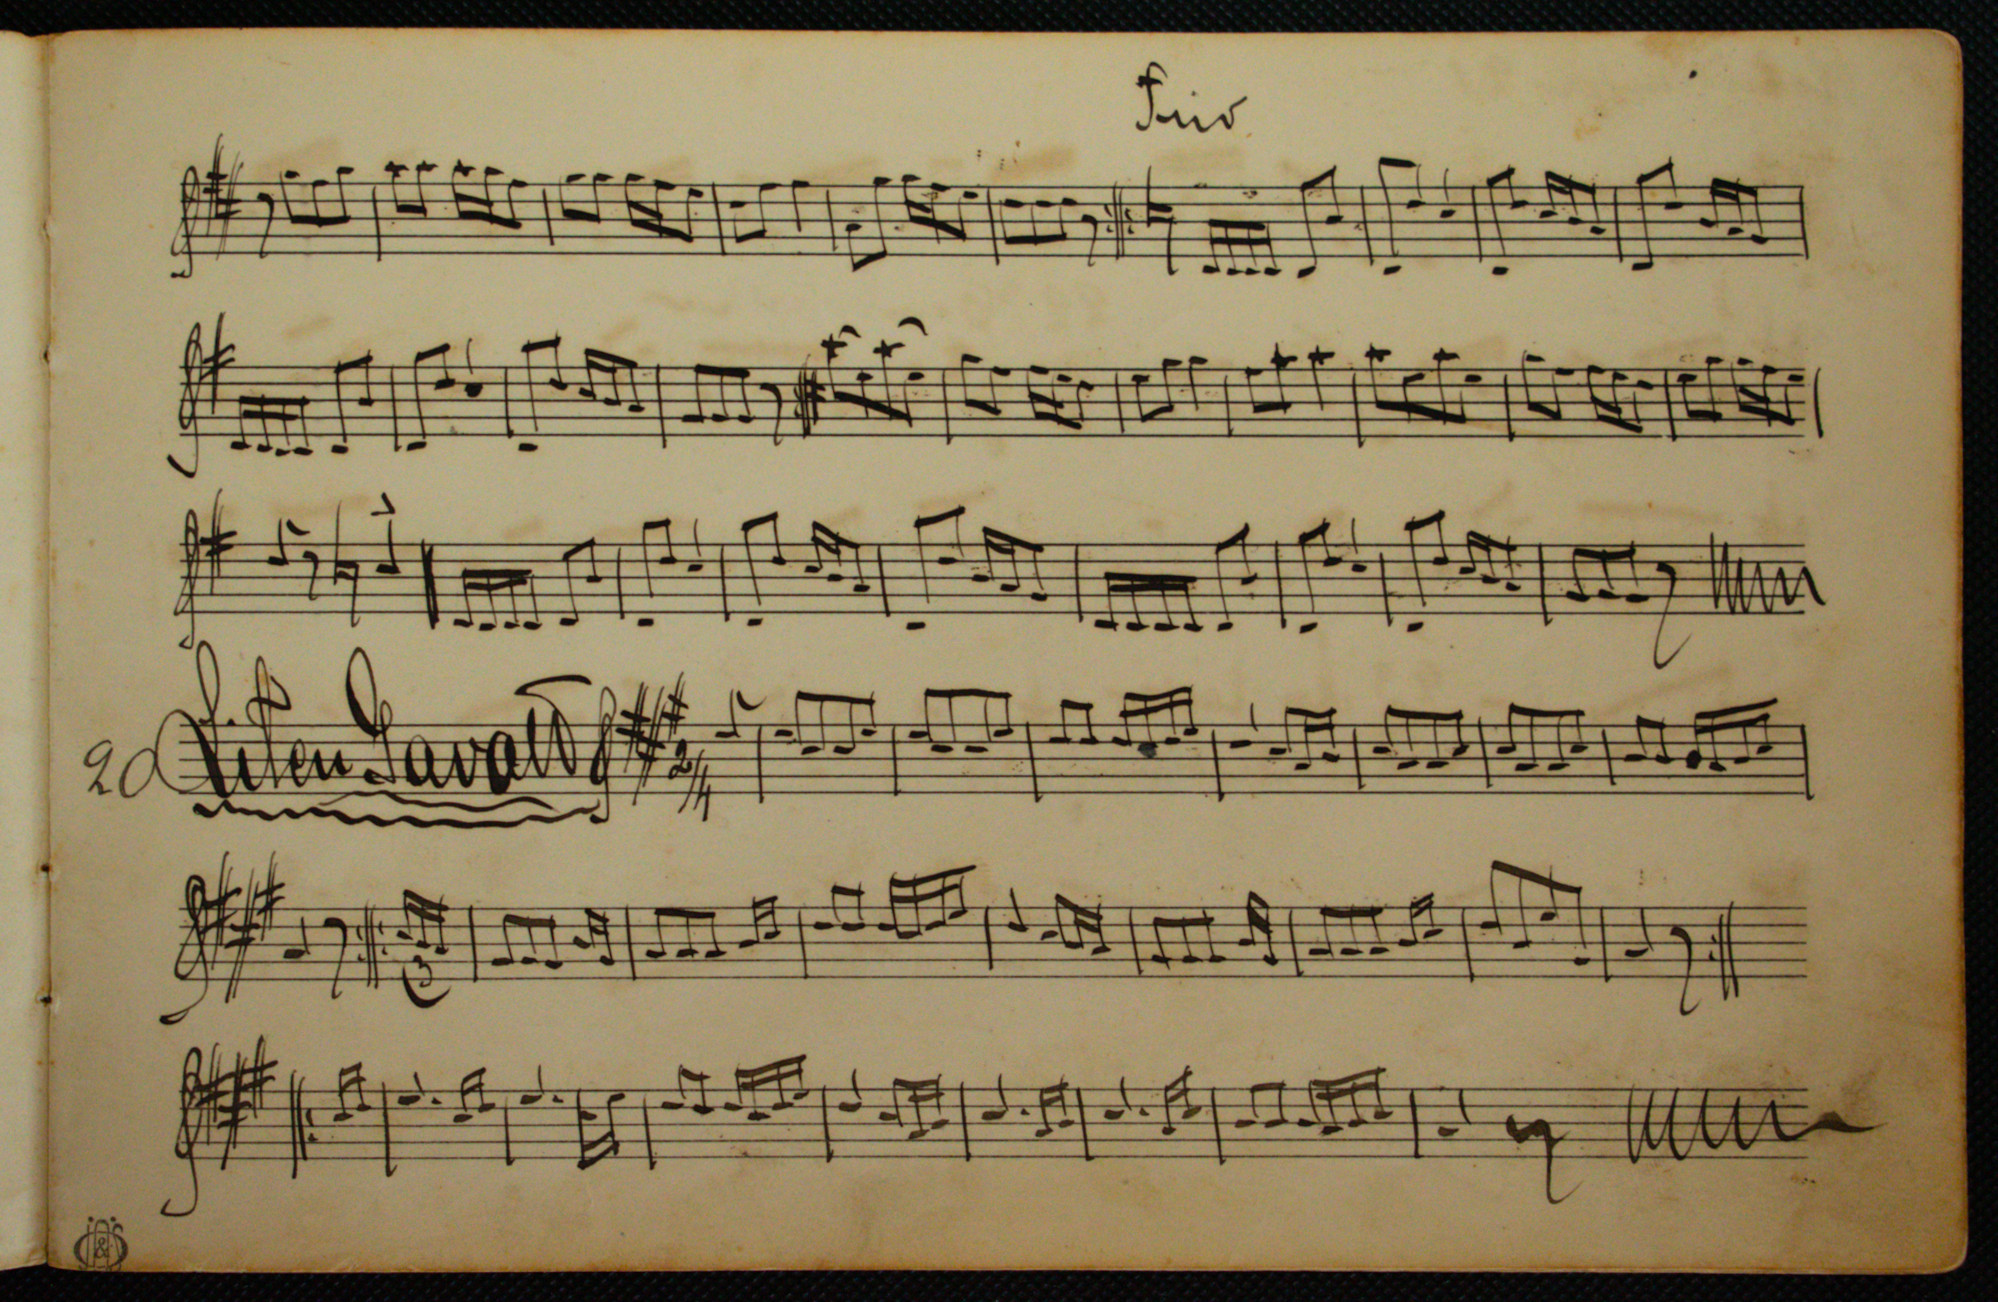 Trio
20 Liten Gavott 2/4
3